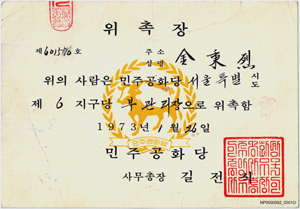 위촉장
제601516호
주소
성명 金秉烈
위의 사람은 민주공화당 서울특별시도
제6지구당 부관리장으로 위촉함
1973년 1월 26일
민주공화당
사무총장 길전식
NP0000592_00010